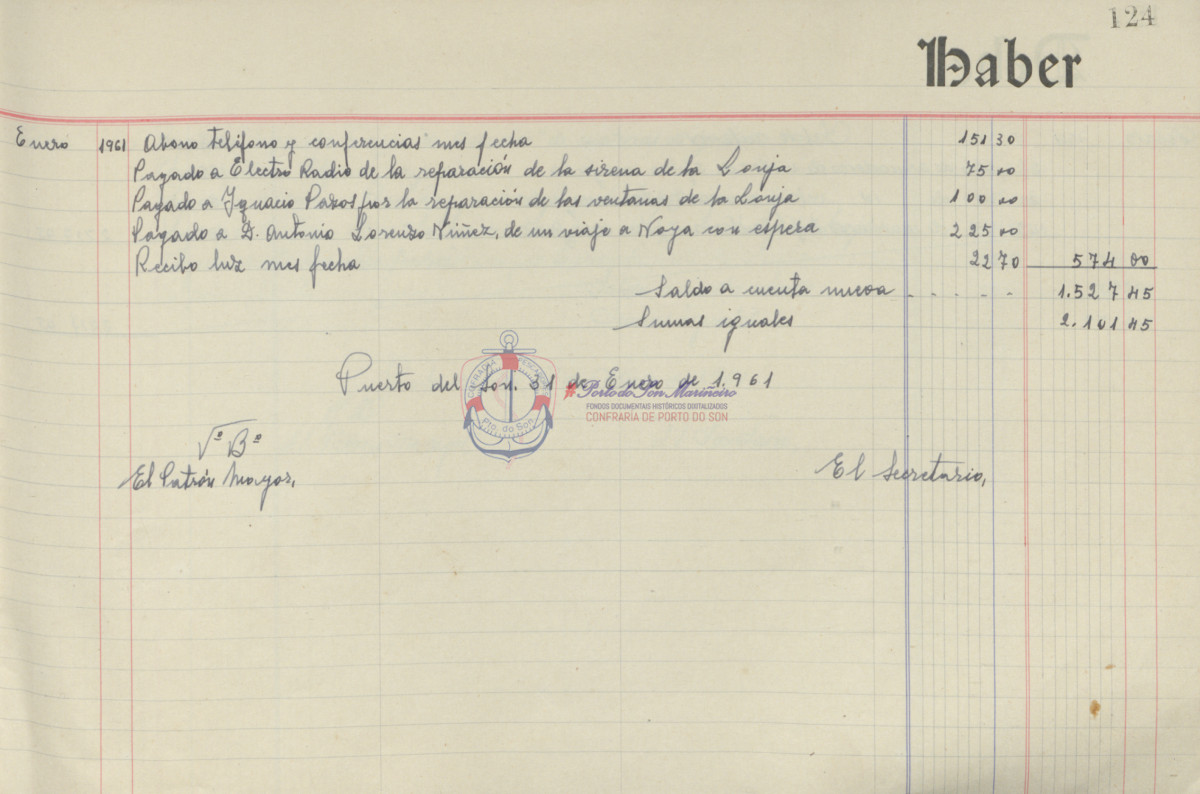 124
Haber
Enero 1961 Abono teléfono y conferencias mes fecha 151 30
Pagado a Electro Radio de la reparación de la sirena de la Lonja 75 00
Pagado a Ignacio Pazos por la reparación de las ventanas de la Lonja 100 00
Pagado a D. Antonio Lorenzo Núñez, de un viaje a Noya con espera 225 00
Recibo luz mes fecha 22 70 574 00
Saldo a cuenta nueva - - - - 1.527 45
Sumas iguales 2.101 45
Puerto del Son. 31 de Enero de 1.961
#Porto do Son Mariñeiro
FONDOS DOCUMENTAIS HISTÓRICOS DIXITALIZADOS
CONFRARÍA DE PORTO DO SON
Pto. do Son
Vº Bº
El Patrón Mayor,
El Secretario,